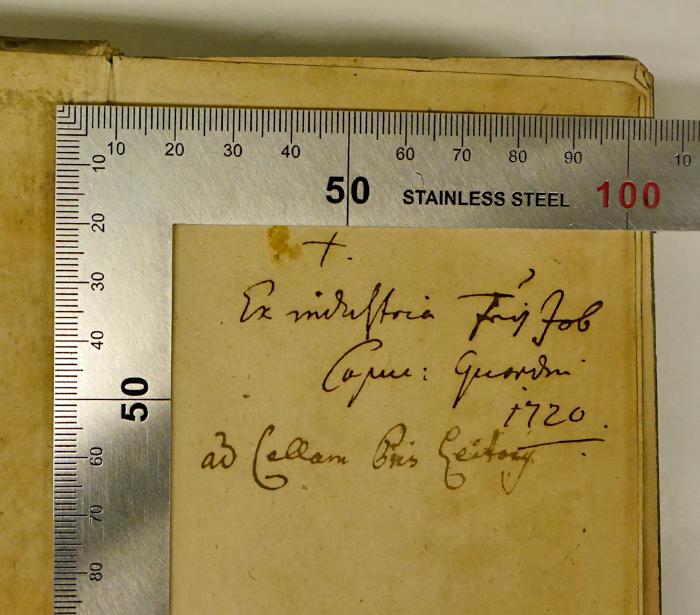 10 20 30 40 50 60 70 80 90 100 10
STAINLESS STEEL
10
20
30
40
50
60
70
80
+.
Ex industria Fris Job
Capu: Guardni
1720.
ad Cellam Pris